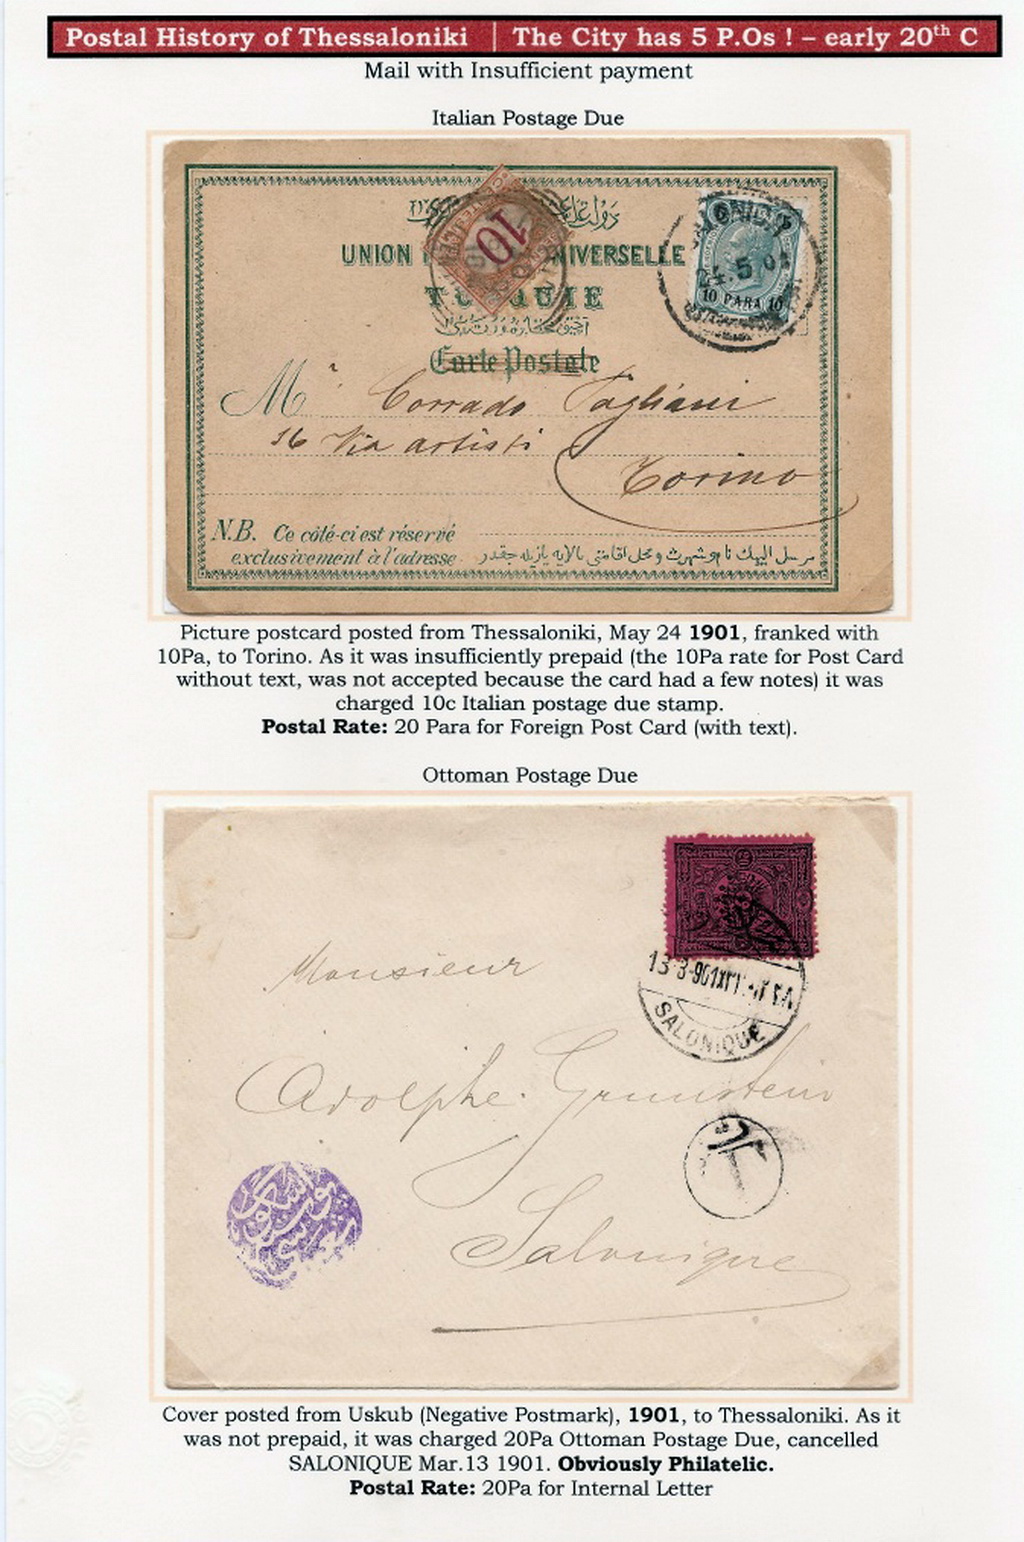 Postal History of Thessaloniki | The City has 5 P.Os ! – early 20th C
Mail with Insufficient payment
Italian Postage Due
10
UNION
NIVERSELLE
10 PARA 10
Carte Postale
Mr Corrado Tagliani
16 Via artisti
Torino
N.B. Ce côté-ci est réservé
exclusivement à l'adresse
Picture postcard posted from Thessaloniki, May 24 1901, franked with
10Pa, to Torino. As it was insufficiently prepaid (the 10Pa rate for Post Card
without text, was not accepted because the card had a few notes) it was
charged 10c Italian postage due stamp.
Postal Rate: 20 Para for Foreign Post Card (with text).
Ottoman Postage Due
13-3-901
SALONIQUE
Monsieur
Adolphe Grunstein
Salonique
T
Cover posted from Uskub (Negative Postmark), 1901, to Thessaloniki. As it
was not prepaid, it was charged 20Pa Ottoman Postage Due, cancelled
SALONIQUE Mar.13 1901. Obviously Philatelic.
Postal Rate: 20Pa for Internal Letter